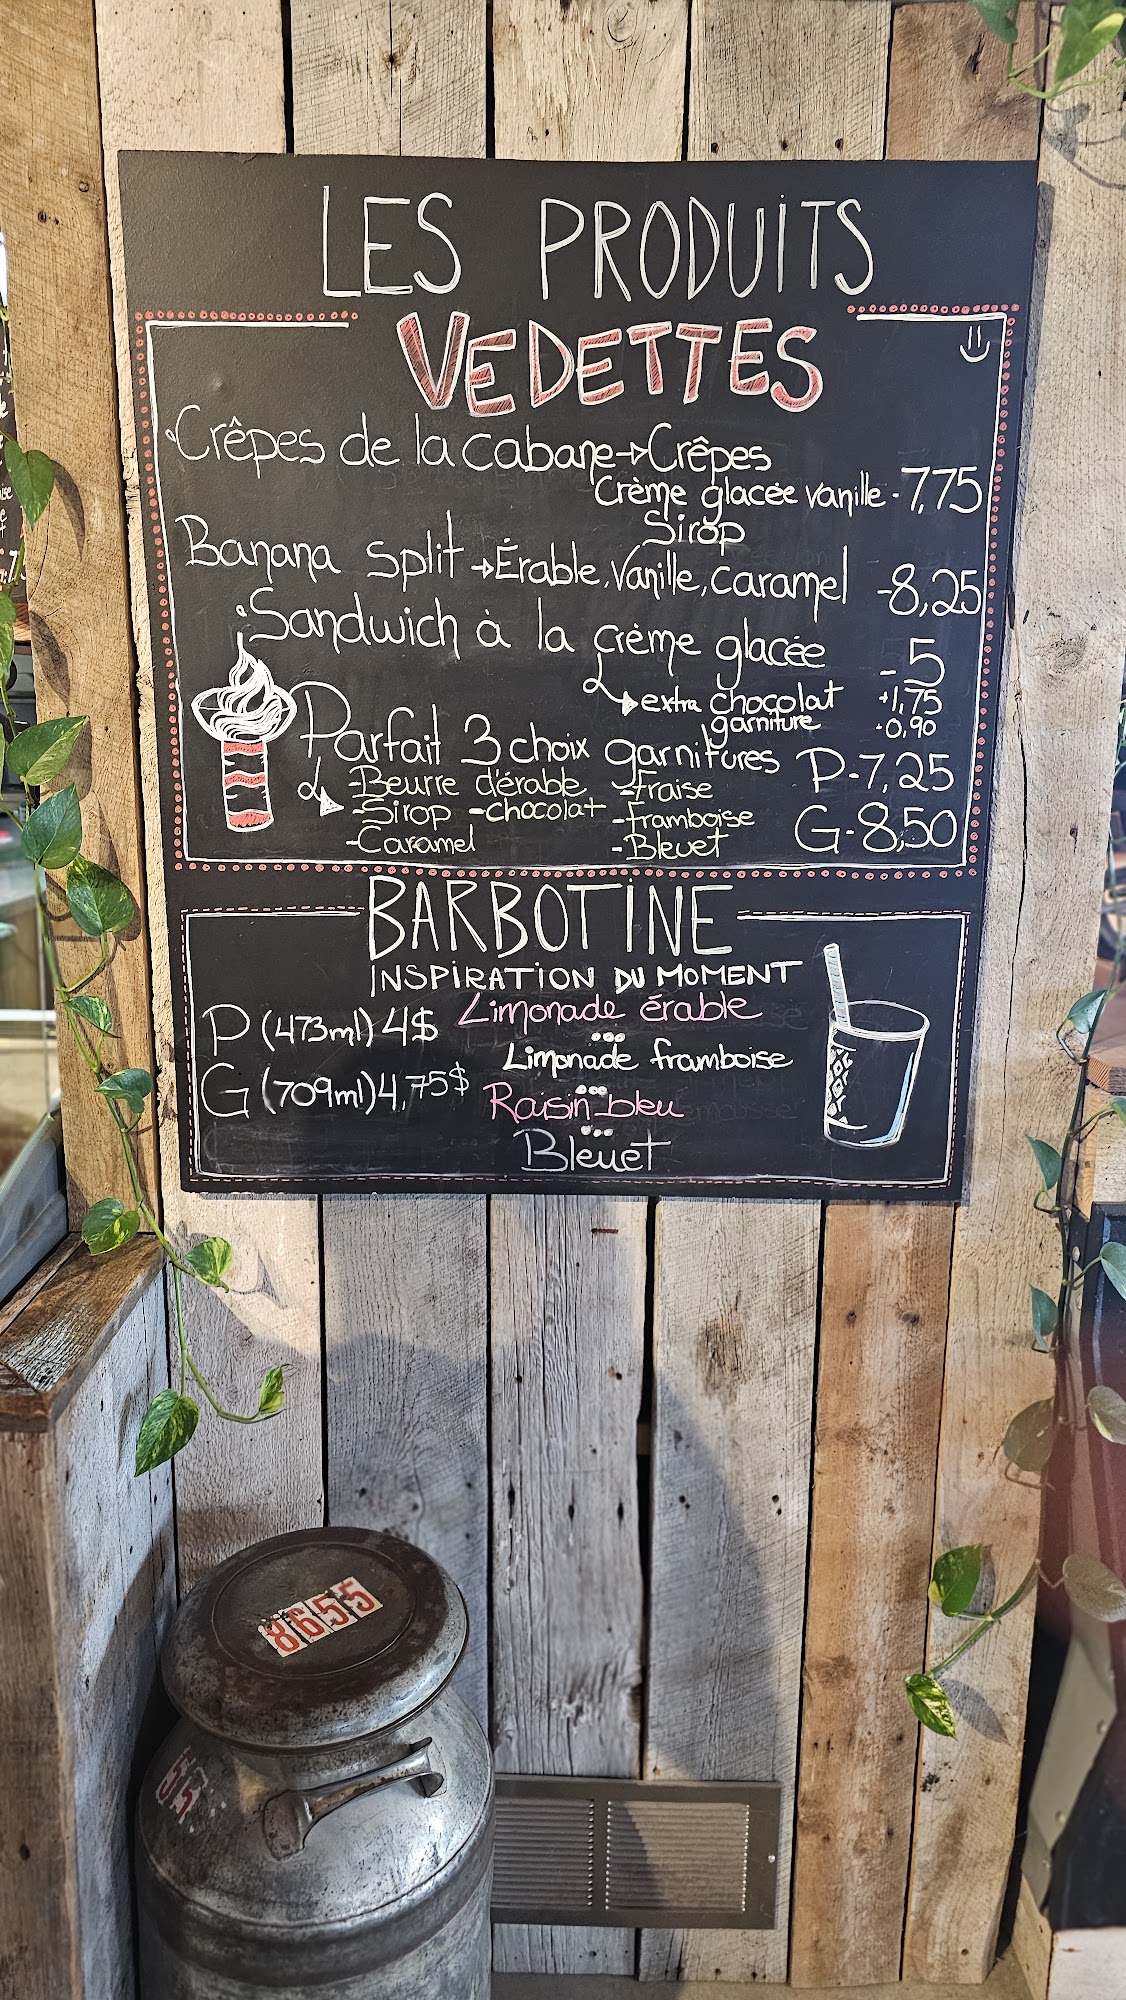 LES PRODUITS
VEDETTES
Crêpes de la cabane → Crêpes
Crème glacée vanille - 7,75
Sirop
Banana split → Érable, Vanille, caramel - 8,25
Sandwich à la crème glacée - 5
extra chocolat +1,75
garniture +0,90
Parfait 3 choix garnitures P - 7,25
- Beurre d'érable - fraise
- Sirop - chocolat - framboise G - 8,50
- Caramel - Bleuet
BARBOTINE
INSPIRATION DU MOMENT
P (473ml) 4$ Limonade érable
Limonade framboise
G (709ml) 4,75$ Raisin bleu
Bleuet
8655
55